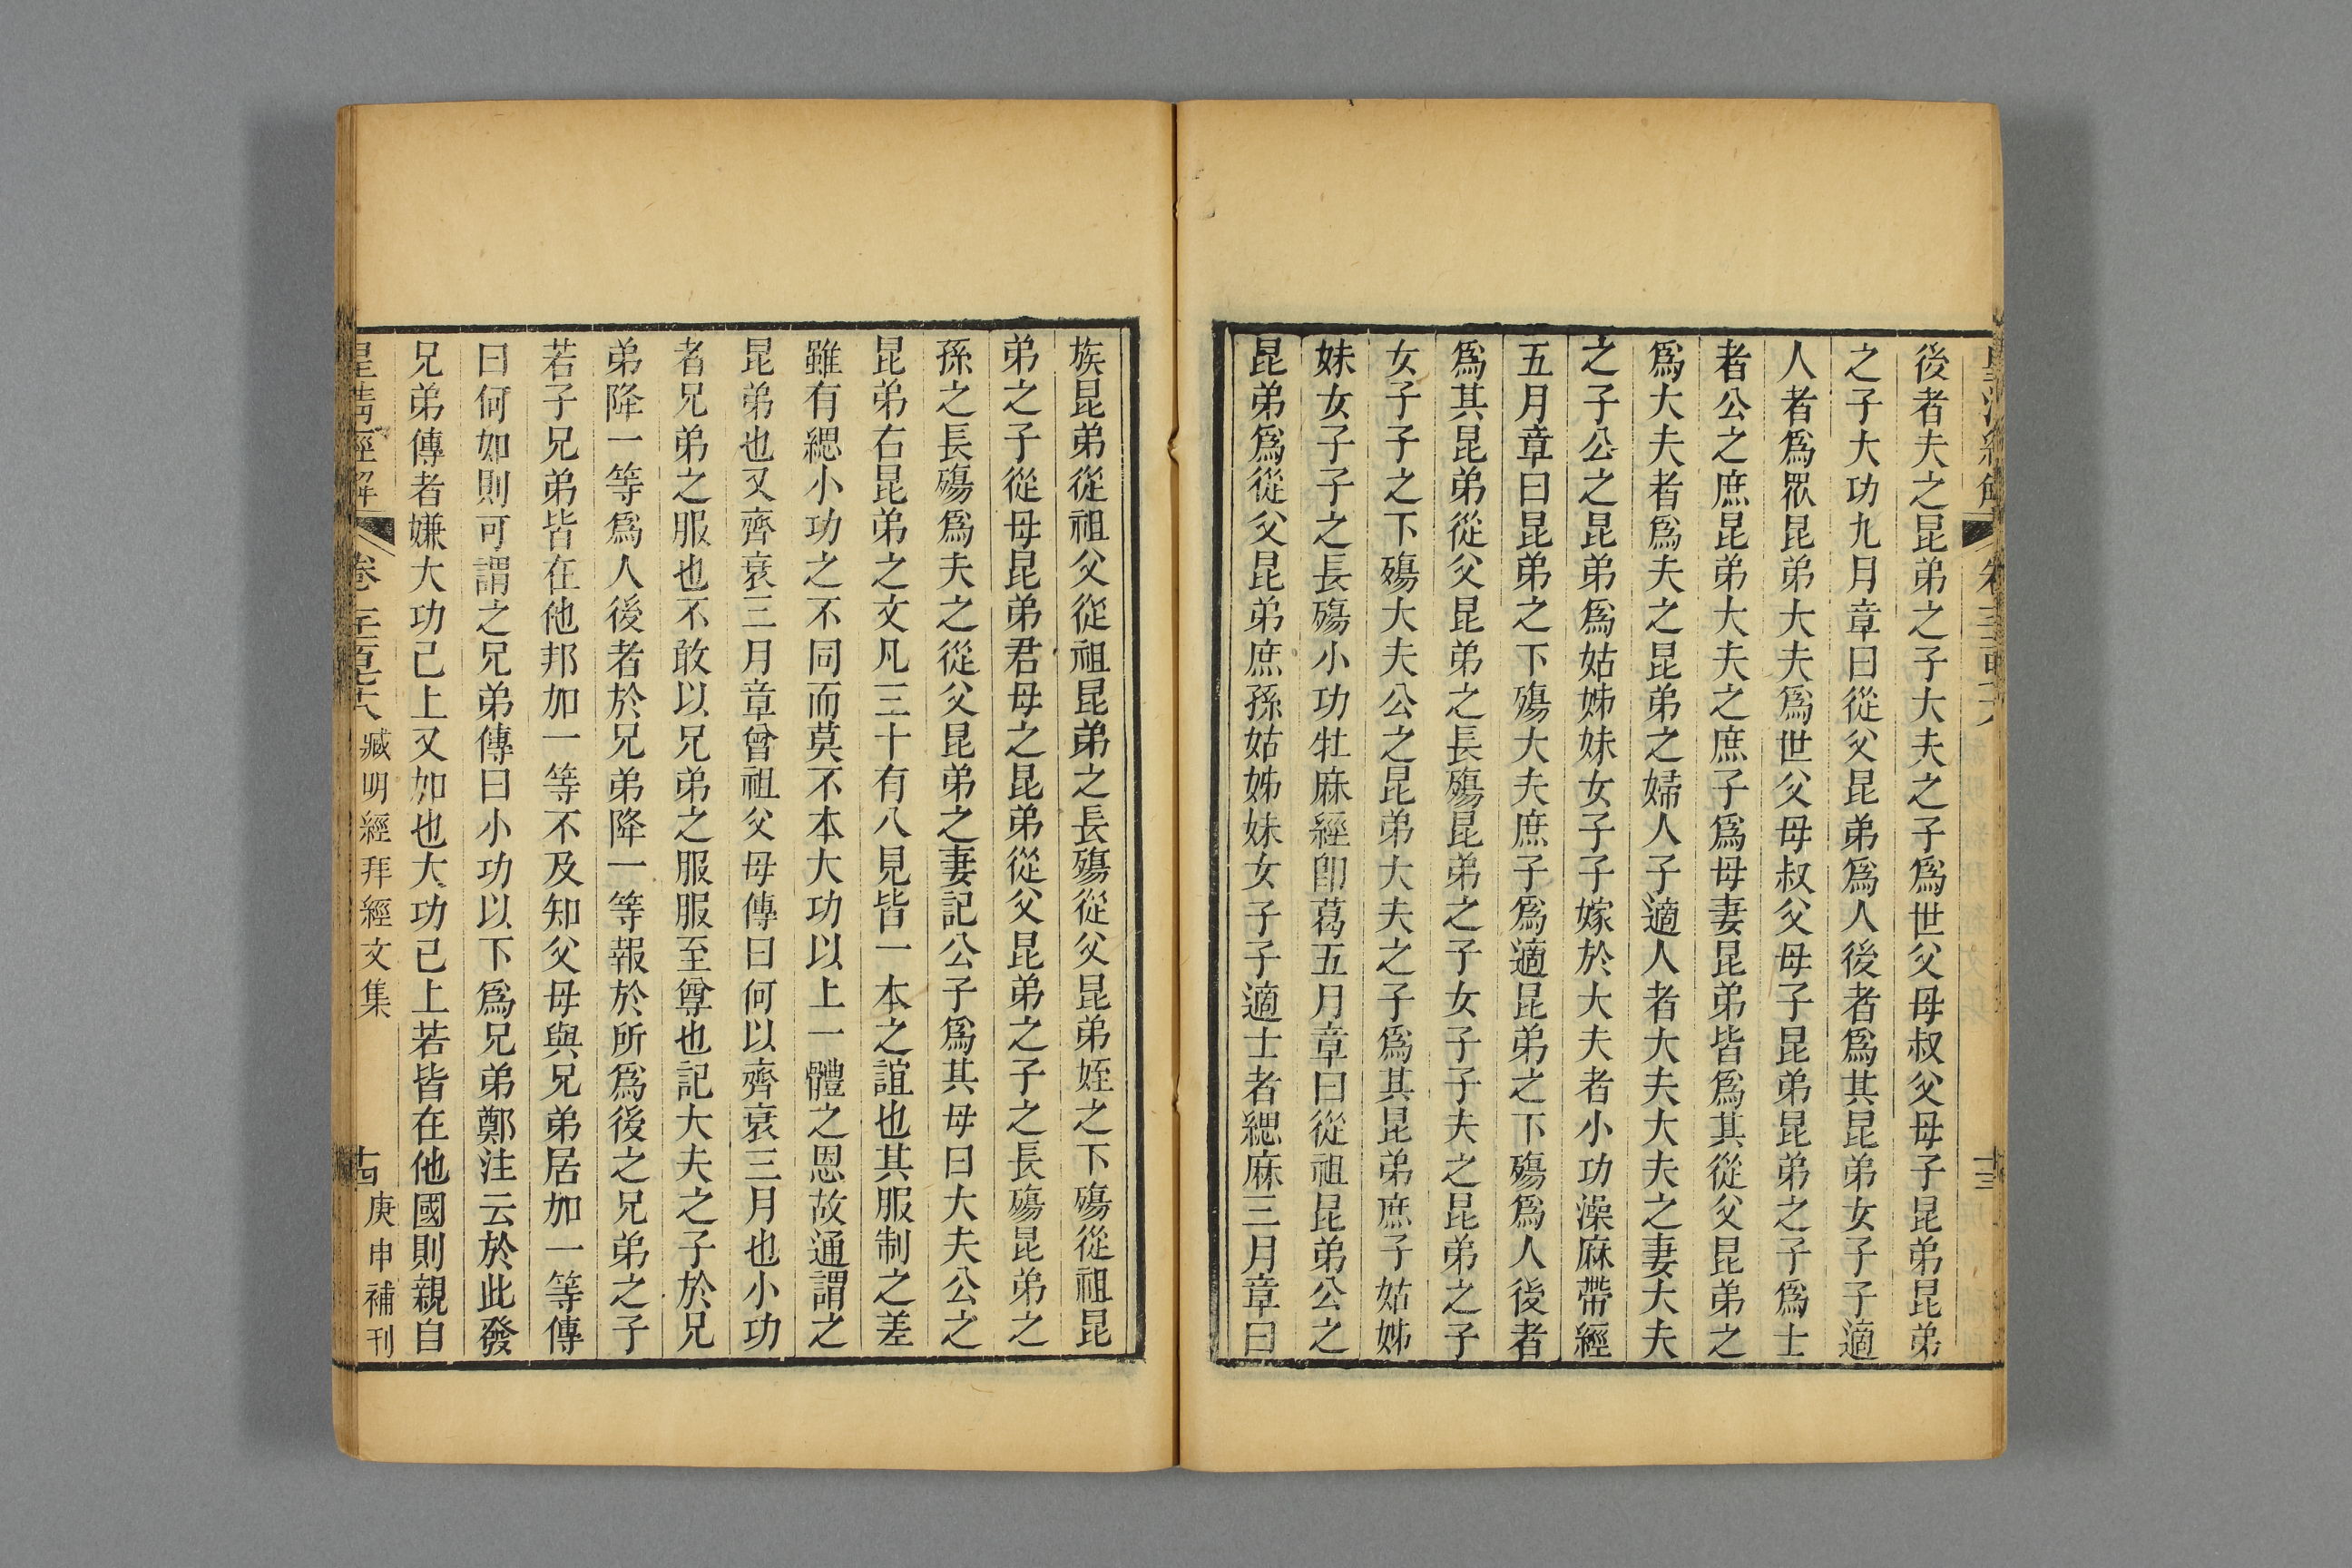 後者夫之昆弟之子大夫之子爲世父母叔父母子昆弟昆弟
之子大功九月章曰從父昆弟爲人後者爲其昆弟女子子適
人者爲眾昆弟大夫爲世父母叔父母子昆弟昆弟之子爲士
者公之庶昆弟大夫之庶子爲母妻昆弟皆爲其從父昆弟之
爲大夫者爲夫之昆弟之婦人子適人者大夫大夫之妻大夫
之子公之昆弟爲姑姊妹女子子嫁於大夫者小功澡麻帶經
五月章曰昆弟之下殤大夫庶子爲適昆弟之下殤爲人後者
爲其昆弟從父昆弟之長殤昆弟之子女子子夫之昆弟之子
女子子之下殤大夫公之昆弟大夫之子爲其昆弟庶子姑姊
妹女子子之長殤小功牡麻經卽葛五月章曰從祖昆弟公之
昆弟爲從父昆弟庶孫姑姊妹女子子適士者緦麻三月章曰
族昆弟從祖父從祖昆弟之長殤從父昆弟姪之下殤從祖昆
弟之子從母昆弟君母之昆弟從父昆弟之子之長殤昆弟之
孫之長殤爲夫之從父昆弟之妻記公子爲其母曰大夫公之
昆弟右昆弟之文凡三十有八見皆一本之誼也其服制之差
雖有緦小功之不同而莫不本大功以上一體之恩故通謂之
昆弟也又齊衰三月章曾祖父母傳曰何以齊衰三月也小功
者兄弟之服也不敢以兄弟之服服至尊也記大夫之子於兄
弟降一等爲人後者於兄弟降一等報於所爲後之兄弟之子
若子兄弟皆在他邦加一等不及知父母與兄弟居加一等傳
曰何如則可謂之兄弟傳曰小功以下爲兄弟鄭注云於此發
兄弟傳者嫌大功已上又加也大功已上若皆在他國則親自
皇清經解 卷 臧明經拜經文集 十四 庚申補刊